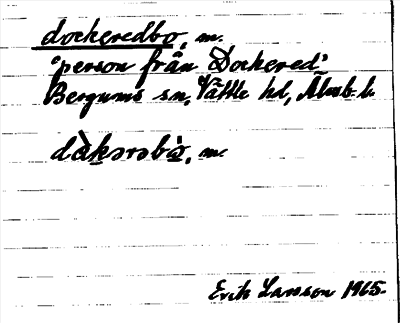 dockeredbo, m.
'person från Dockered'
Bergums sn, Vättle hd, Älvsb. l.
dàkərəbò, m.
Erik Larsson 1965.